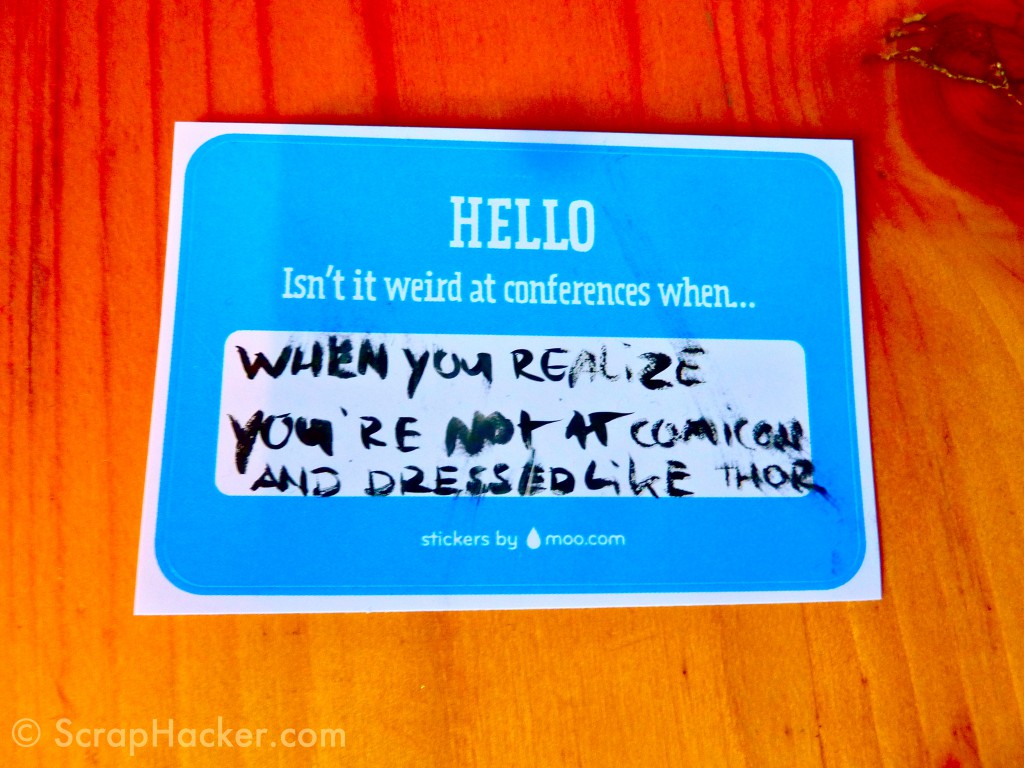 HELLO
Isn't it weird at conferences when...
WHEN YOU REALIZE
YOU'RE NOT AT COMICON
AND DRESSED LIKE THOR
stickers by moo.com
© ScrapHacker.com